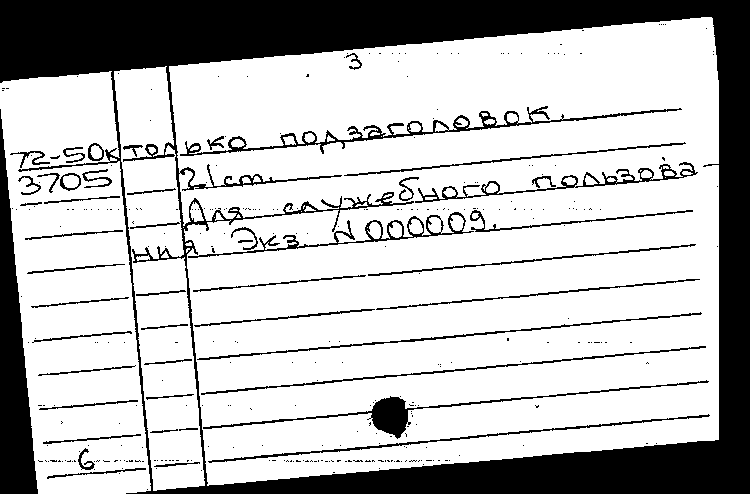 3
72-50к только подзаголовок.
3705 21 cm.
Для служебного пользова
ния. Экз N000009.
6